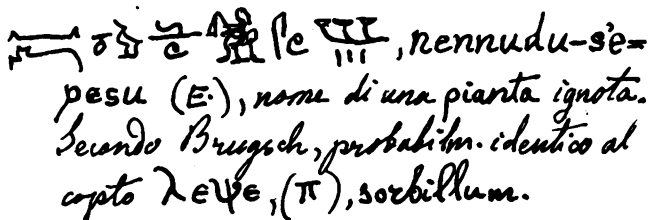 , nennudu-s'e=
pesu (E.), nome di una pianta ignota.
Secondo Brugsch, probabilm. identico al
copto λεψε, (π), sorbillum.